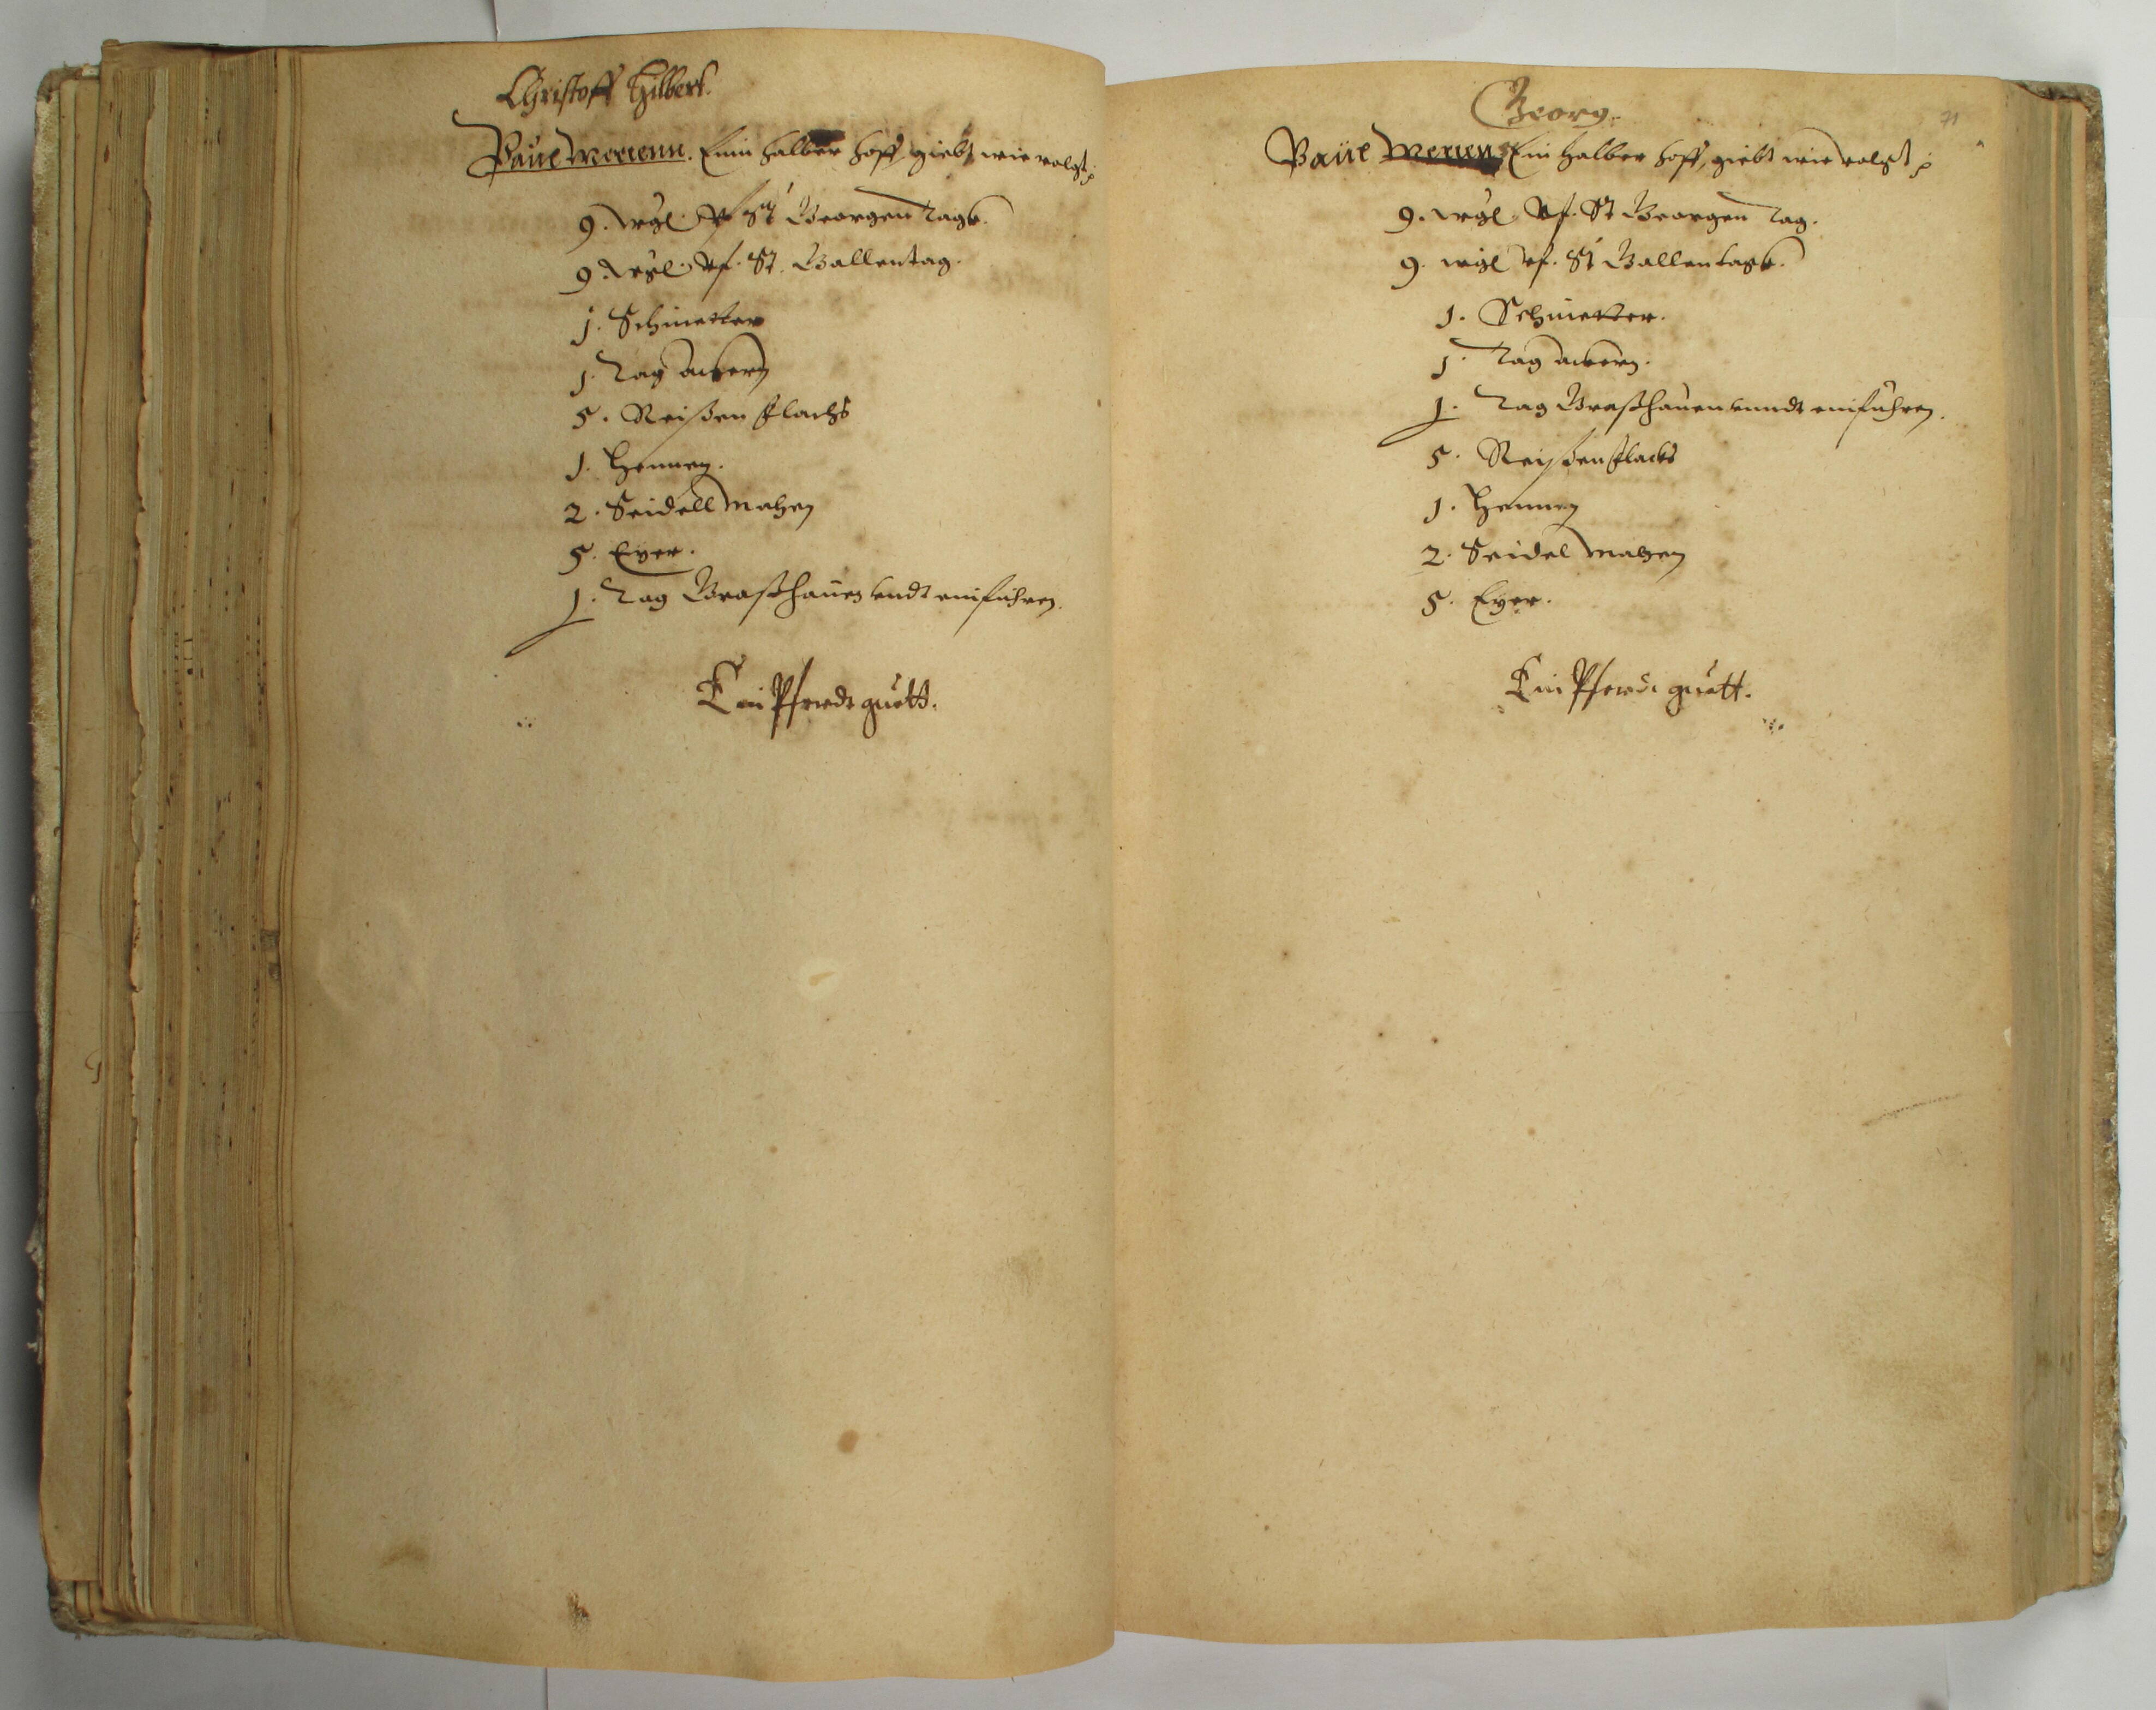 Christoff Hilbert.
Paul Merten. Ein halber hoff, giebt wie volgt
9. wgl. vf St Georgen Tage.
9. wgl. vf. St. Gallentag.
1. Schnietter
1. Tag ackern
5. Reißen flachs
1. Hennen.
2. Seidell Mahen
5. Eyer.
1. Tag Graßhauen vndt einführen.
Ein Pferde gutt.
71
Georg.
Paul Ein halber hoff, giebt wie volgt
9. wgl. vf. St Georgen Tag.
9. wgl vf. St Gallentage.
1. Schnietter.
1. Tag ackern.
1. Tag Graßhauen vnndt einführen.
5. Reißen flachs
1. Hennen
2. Seidel Mahen
5. Eyer.
Ein Pferde gutt.